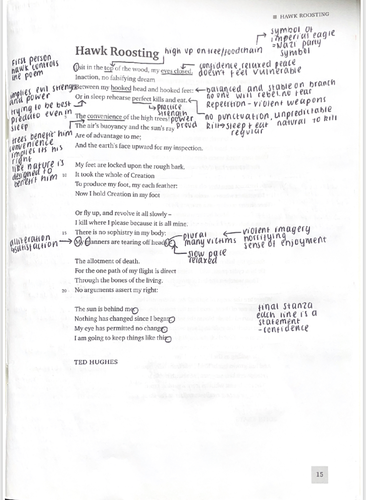 HAWK ROOSTING
Hawk Roosting
high up on tree/foodchain
symbol of
imperial eagle
- Nazi party
symbol
first person
hawk controls
the poem
I sit in the top of the wood, my eyes closed.
confidence, relaxed peace
doesn't feel vulnerable
Inaction, no falsifying dream
implies evil strength
and power
Between my hooked head and hooked feet:
balanced and stable on branch
no one will rebel, no fear
trying to be best
predator even in
sleep
Or in sleep rehearse perfect kills and eat.
practice
Repetition - violent weapons
strength
power
proud
no punctuation, unpredictable
kill → sleep → eat natural to kill
regular
The convenience of the high trees!
trees benefit him
convenience
implies its his
right
like nature is
designed to
benefit him
The air's buoyancy and the sun's ray
Are of advantage to me;
And the earth's face upward for my inspection.
My feet are locked upon the rough bark.
10 It took the whole of Creation
To produce my foot, my each feather:
Now I hold Creation in my foot
Or fly up, and revolve it all slowly –
I kill where I please because it is all mine.
15 There is no sophistry in my body:
plural
many victims
violent imagery
horrifying
sense of enjoyment
alliteration
My manners are tearing off heads –
slow pace
relaxed
The allotment of death.
For the one path of my flight is direct
Through the bones of the living.
20 No arguments assert my right:
The sun is behind me.
Nothing has changed since I began.
My eye has permitted no change.
I am going to keep things like this.
final stanza
each line is a
statement
- confidence
TED HUGHES
15